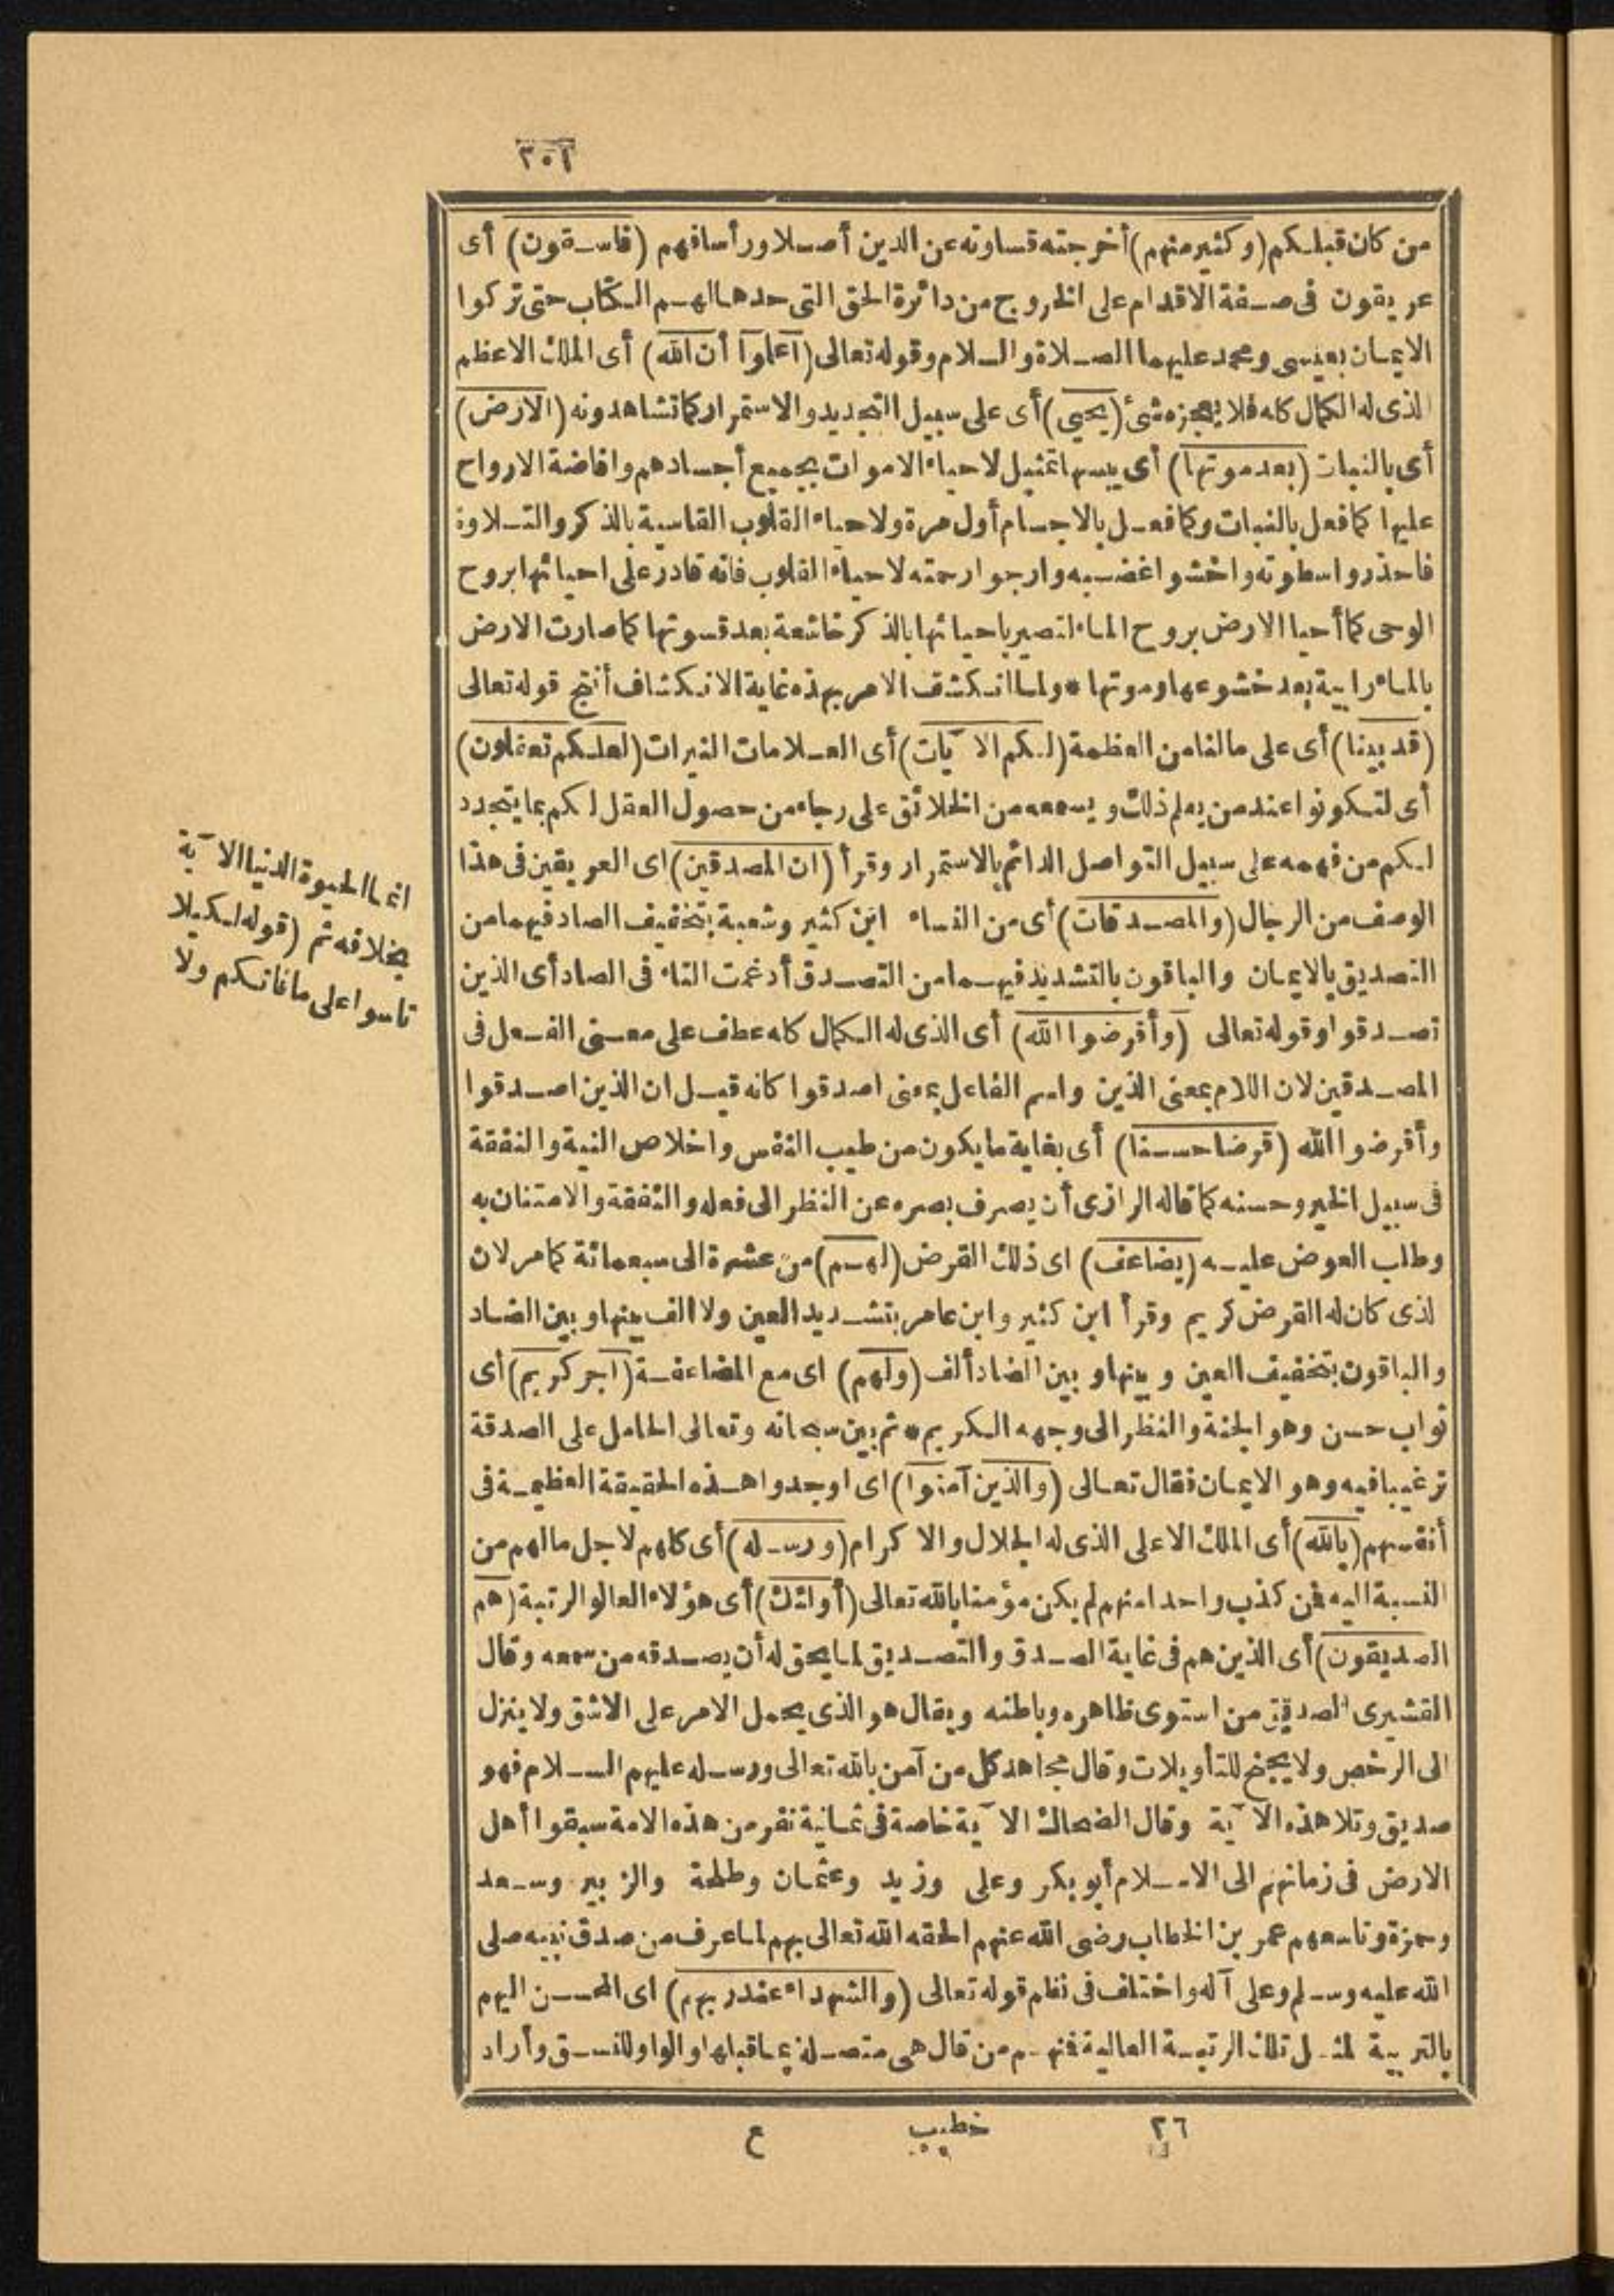 ٢٠١
من كان قبلكم (وكثير منهم) أخرجته قساوته عن الدين أصلا ورأسا فهم (فاسقون) أى
عريقون فى صفة الاقدام على الخروج من دائرة الحق التى حدها لهم الكتاب حتى تركوا
الايمان بعيسى ومحمد عليهما الصلاة والسلام وقوله تعالى (اعلوا أن الله) أى الملك الاعظم
الذى له الكمال كله فلا يعجزه شئ (يحيى) أى على سبيل التجديد والاستمرار كما تشاهدونه (الارض)
أى بالنبات (بعد موتها) أى يبسها تمثيل لاحياء الاموات بجميع أجسادهم وافاضة الارواح
عليها كما فعل بالنبات وكما فعل بالاجسام أول مرة ولاحياء القلوب القاسية بالذكر والتلاوة
فاحذروا سطوته واخشوا غضبه وارجوا رحمته لاحياء القلوب فانه قادر على احيائها بروح
الوحى كما أحيا الارض بروح الماء لتصير باحيائها بالذكر خاشعة بعد قسوتها كما صارت الارض
بالماء رابية بعد خشوعها وموتها * ولما انكشف الامر بهذه غاية الانكشاف أنتج قوله تعالى
(قد بينا) أى على مالنا من العظمة (لكم الآيات) أى العلامات النيرات (لعلكم تعقلون)
أى لتكونوا عند من يعلم ذلك ويسمعه من الخلائق على رجاء من حصول العقل لكم بما يتجدد
لكم من فهمه على سبيل التواصل الدائم بالاستمرار وقرأ (ان المصدقين) اى العريقين فى هذا
الوصف من الرجال (والمصدقات) أى من النساء ابن كثير وشعبة بتخفيف الصاد فيهما من
التصديق بالايمان والباقون بالتشديد فيهما من التصدق أدغمت التاء فى الصاد أى الذين
تصدقوا وقوله تعالى (وأقرضوا الله) أى الذى له الكمال كله عطف على معنى الفعل فى
المصدقين لان اللام بمعنى الذين واسم الفاعل بمعنى اصدقوا كانه قيل ان الذين اصدقوا
وأقرضوا الله (قرضا حسنا) أى بغاية ما يكون من طيب النفس واخلاص النية والنفقة
فى سبيل الخير وحسنه كما قاله الرازى أن يصرف بصره عن النظر الى فعله والنفقة والامتنان به
وطلب العوض عليه (يضاعف) اى ذلك القرض (لهم) من عشرة الى سبعمائة كما مر لان
لذى كان له القرض كريم وقرأ ابن كثير وابن عامر بتشديد العين ولا الف بينها وبين الضاد
والباقون بتخفيف العين وبينها وبين الضاد ألف (ولهم) اى مع المضاعفة (أجر كريم) أى
ثواب حسن وهو الجنة والنظر الى وجهه الكريم * ثم بين سبحانه وتعالى الحامل على الصدقة
ترغيبا فيه وهو الايمان فقال تعالى (والذين آمنوا) اى اوجدوا هذه الحقيقة العظيمة فى
أنفسهم (بالله) أى الملك الاعلى الذى له الجلال والاكرام (ورسله) أى كلهم لاجل مالهم من
النسبة اليه فمن كذب واحدا منهم لم يكن مؤمنا بالله تعالى (أولئك) أى هؤلاء العالو الرتبة (هم
الصديقون) أى الذين هم فى غاية الصدق والتصديق لما يحق له أن يصدقه من سمعه وقال
القشيرى الصديق من استوى ظاهره وباطنه ويقال هو الذى يحمل الامر على الاشق ولا ينزل
الى الرخص ولا يجنح للتأويلات وقال مجاهد كل من آمن بالله تعالى ورسله عليهم السلام فهو
صديق وتلا هذه الآية وقال الضحاك الآية خاصة فى ثمانية نفر من هذه الامة سبقوا أهل
الارض فى زمانهم الى الاسلام أبو بكر وعلى وزيد وعثمان وطلحة والزبير وسعد
وحمزة وتاسعهم عمر بن الخطاب رضى الله عنهم الحقه الله تعالى بهم لما عرف من صدق نبيه صلى
الله عليه وسلم وعلى آله واختلف فى نظم قوله تعالى (والشهداء عند ربهم) اى المحسن اليهم
بالتربية لمثل تلك الرتبة العالية فمنهم من قال هى متصلة بما قبلها والواو للنسق وأراد
انما الحيوة الدنيا الآية
بخلافه ثم (قوله لكيلا
تاسوا على ما فاتكم ولا
٢٦ خطيب ع